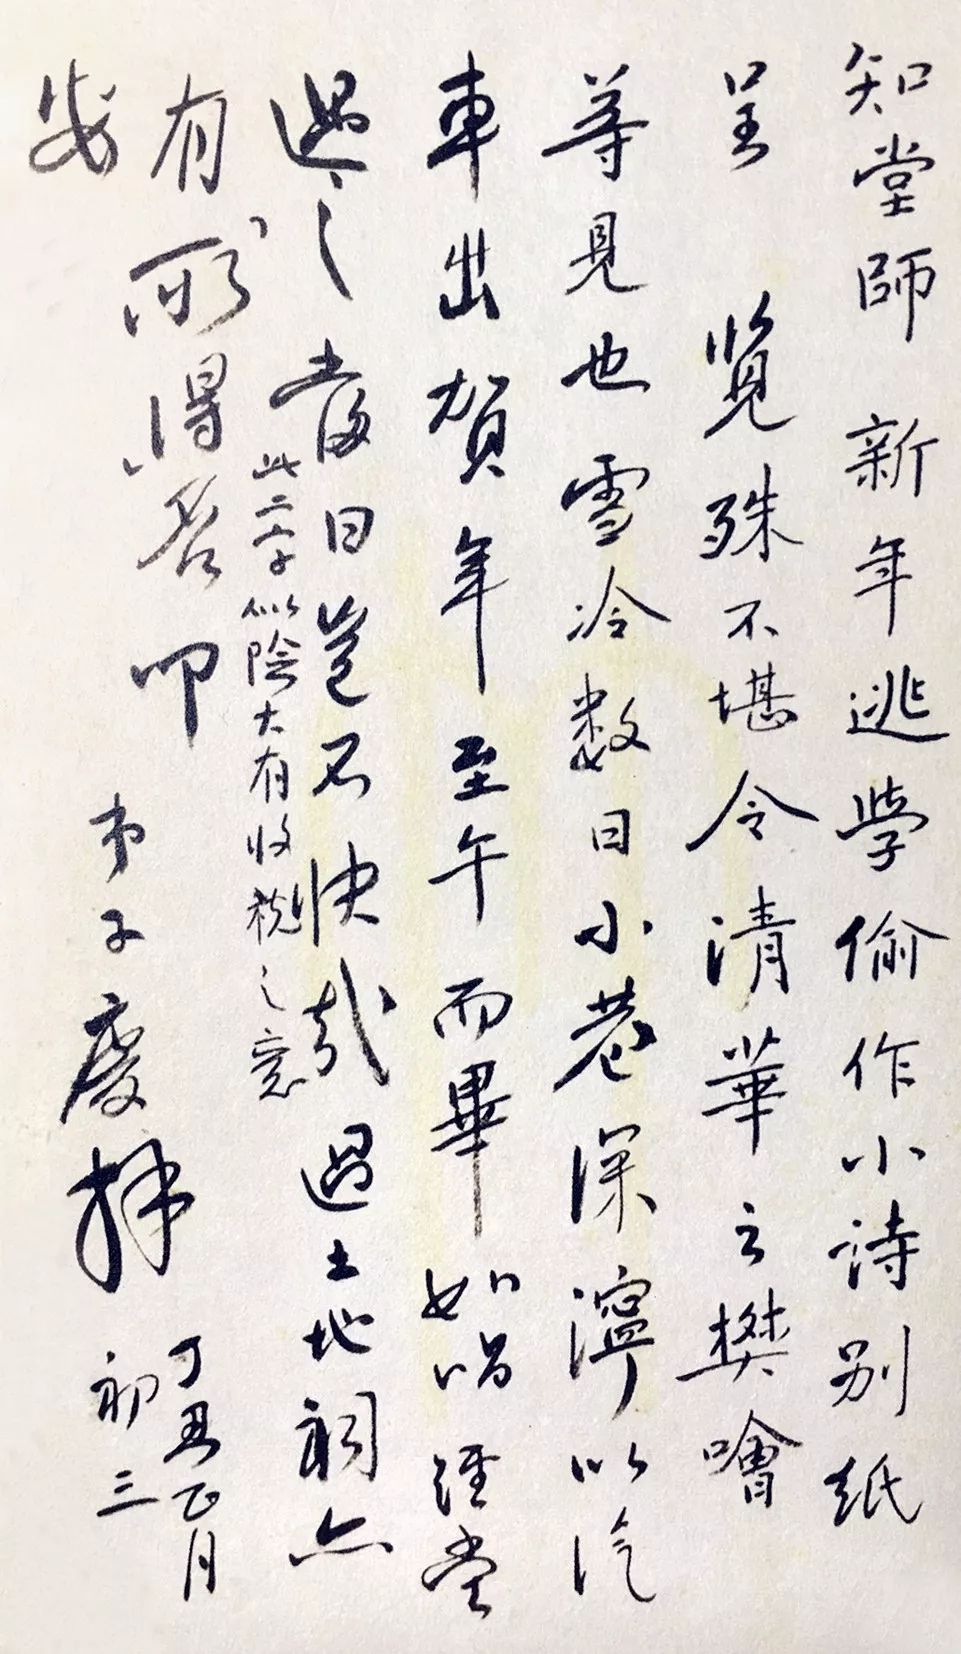 知堂師 新年逃學偷作小詩別紙
呈 覽殊不堪令清華之樊噲
等見也雪冷數日小巷深濘以汽
車出賀年至午而畢如唱經堂
遇之發日豈不快哉過土地祠亦
此二字似陰大有收禊之意
有所得否叩
安
弟子廢拜
丁丑正月
初三